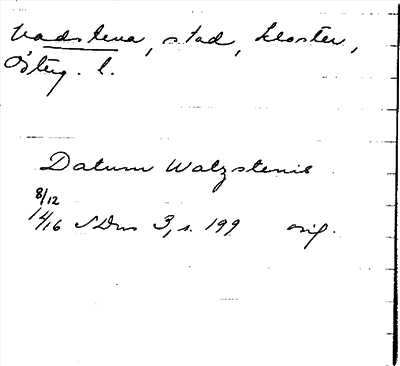 Vadstena, stad, kloster,
Österg. l.
Datum Watzstenis
8/12
1416 SDns 3, s. 199 orig.